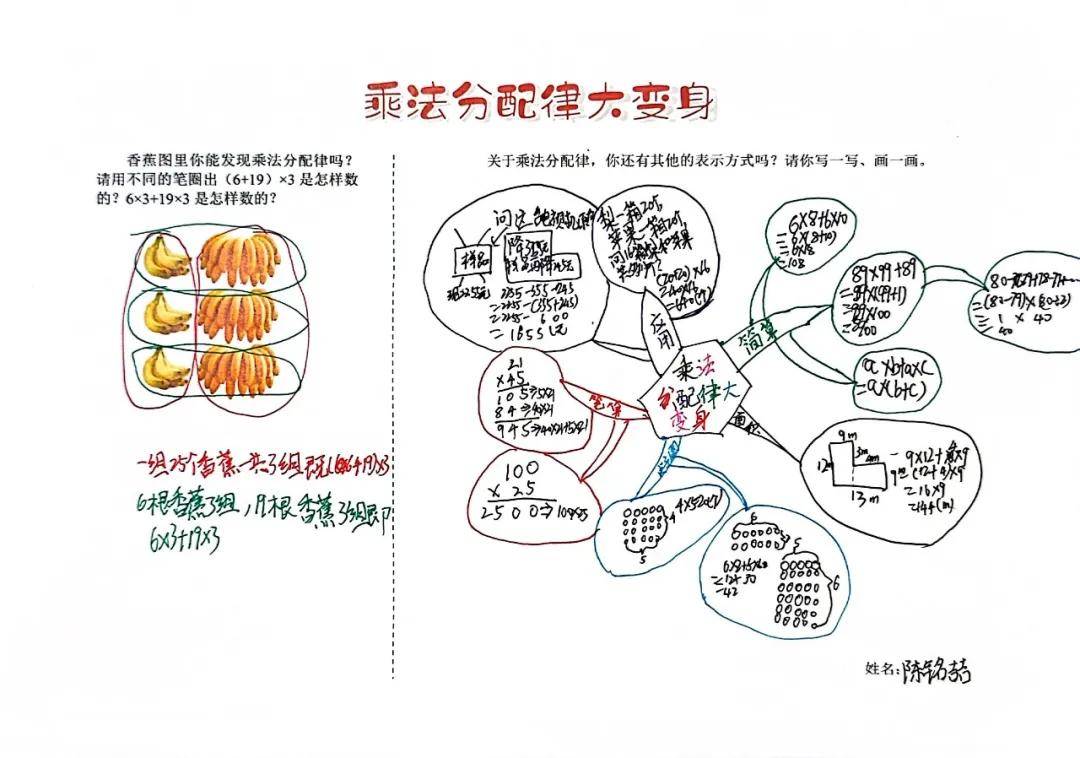 乘法分配律大变身
香蕉图里你能发现乘法分配律吗？
请用不同的笔圈出（6+19）×3 是怎样数
的？6×3+19×3 是怎样数的？
一组25个香蕉一共3组既(6+19)×3
6根香蕉3组，19根香蕉3组即
6×3+19×3
关于乘法分配律，你还有其他的表示方式吗？请你写一写、画一画。
样品
2255-355-245
=2255-(355+245)
=2255-600
=1655元
梨一箱20斤
苹果一箱20斤
应用
6×8+6×10
=6×(8+10)
=6×18
=108
89×99+89
=89×(99+1)
=89×100
=(82-79)×(
=1×40
=40
a×b+a×c
=a×(b+c)
简算
乘法
分配律大
变身
面积
9m
12m
3m
4m
9m
13m
9×12+4×9
=16×9
=144(m)
21
×45
105⇒5×21
84⇒4×21
945⇒40×21+5×21
笔算
100
×25
2500
4
5
6
6×8+5×6
=12+30
=42
5
6
姓名：陈铭喆